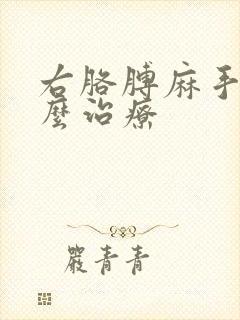 右胳膊麻手
麼治療
嚴青青